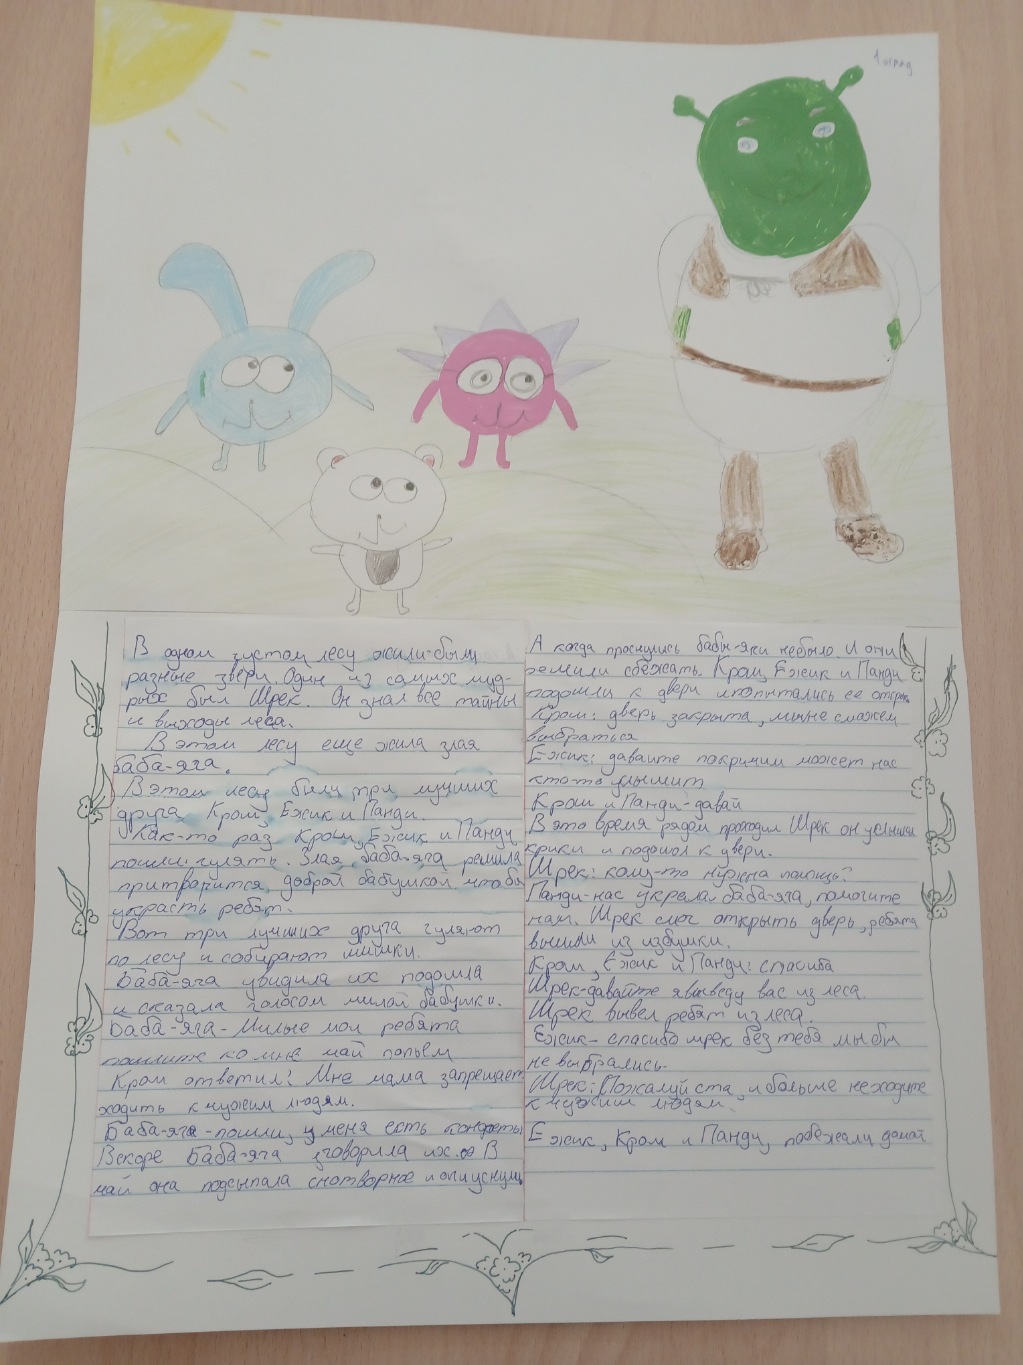 1 отряд
В одном густом лесу жили-были
разные звери. Один из самых муд-
рых был Шрек. Он знал все тайны
и выходы леса.
В этом лесу еще жила злая
баба-яга.
В этом лесу были три лучших
друга Крош, Ёжик и Панди.
Как-то раз Крош, Ёжик и Панди
пошли гулять. Злая баба-яга решила
притворится доброй бабушкой что бы
украсть ребят.
Вот три лучших друга гуляют
по лесу и собирают шишки.
Баба-яга увидила их подошла
и сказала голосом милой бабушки.
Баба-яга-Милые мои ребята
пошлите ко мне чай попьём
Крош ответил: Мне мама запрещает
ходить к чужим людям.
Баба-яга-пошли, у меня есть конфеты
Вскоре Баба-яга уговорила их. В
чай она подсыпала снотворное и они уснули
А когда проснулись бабы-яги небыло. И они
решили сбежать. Крош, Ёжик и Панди
подошли к двери и попытались её открыть.
Крош: дверь закрыта, мы не сможем
выбраться
Ёжик: давайте покричим может нас
кто-то услышит
Крош и Панди-давай
В это время рядом проходил Шрек он услышал
крики и подошол к двери.
Шрек: кому-то нужна помощь?
Панди-нас украла баба-яга, помогите
нам. Шрек смог открыть дверь, ребята
вышли из избушки.
Крош, Ёжик и Панди: спасиба
Шрек-давайте я выведу вас из леса.
Шрек вывел ребят из леса.
Ёжик- спасибо шрек без тебя мы бы
не выбрались.
Шрек: Пожалуйста, и больше не ходите
к чужим людям.
Ёжик, Крош и Панди, побежали домой